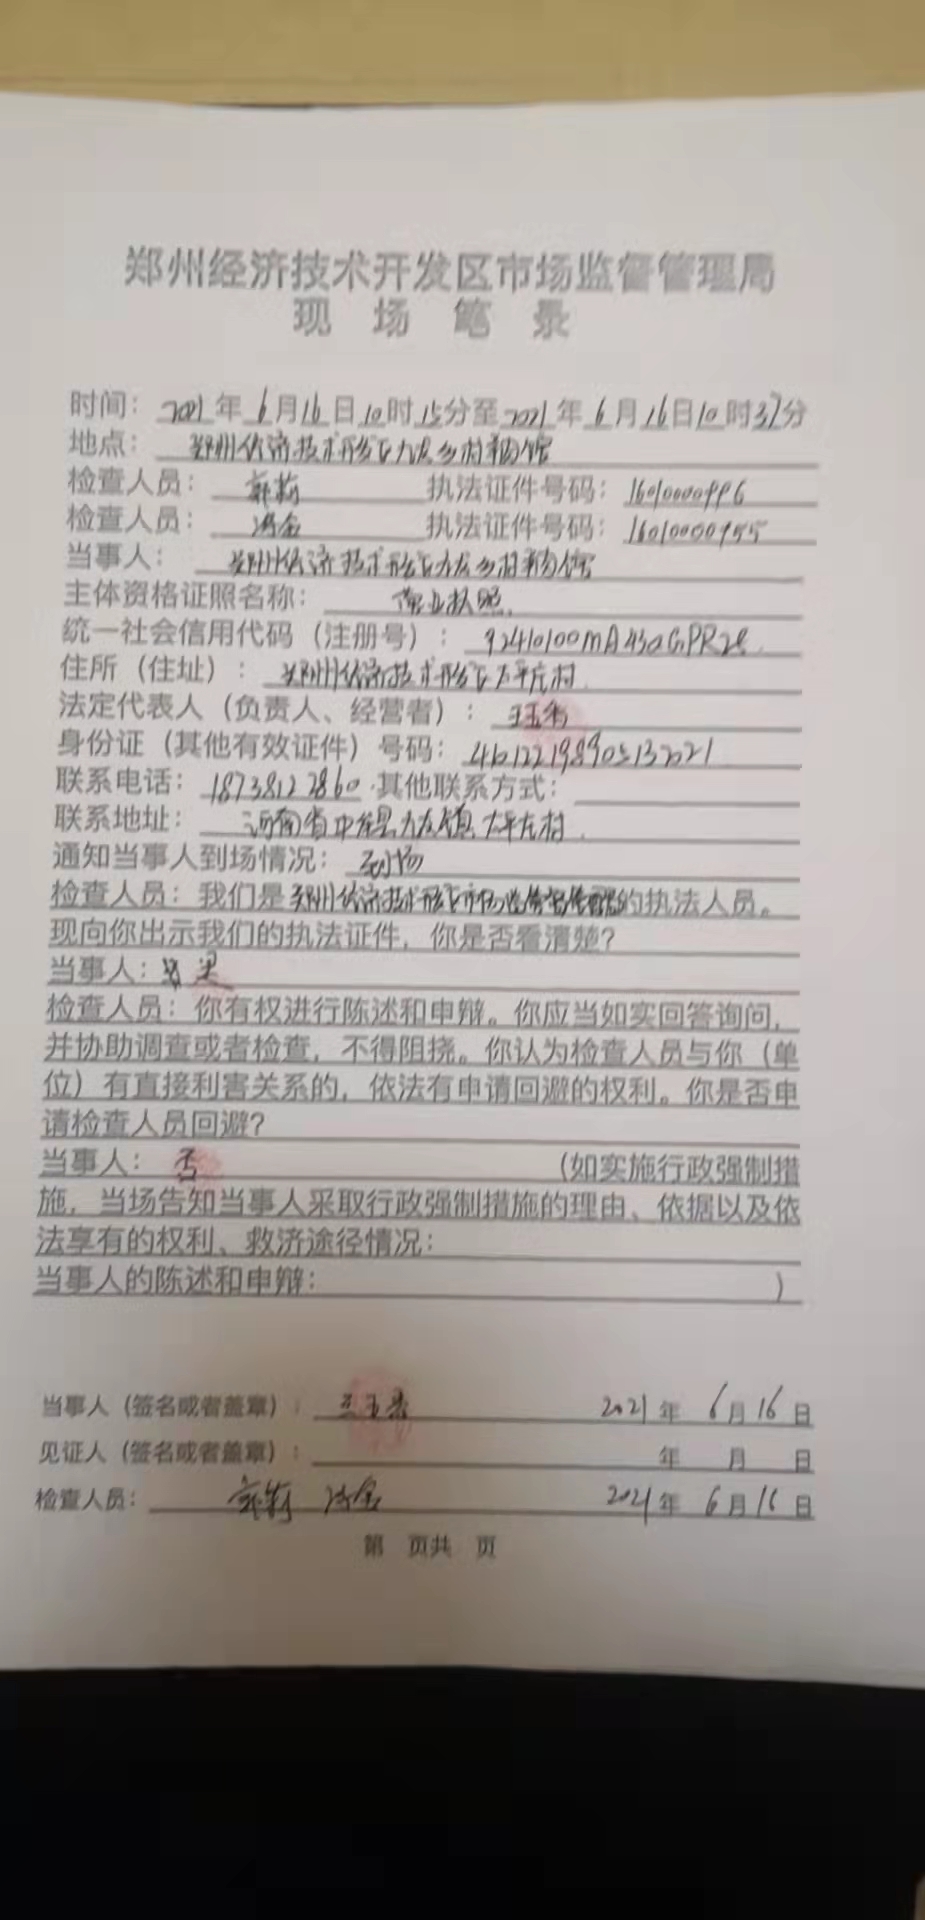 郑州经济技术开发区市场监督管理局
现 场 笔 录
时间：2021年6月16日10时15分至2021年6月16日10时37分
地点：郑州经济技术开发区九龙乡村
检查人员： 执法证件号码：16010000996
检查人员： 执法证件号码：16010000955
当事人：郑州经济技术开发区九龙乡村
主体资格证照名称：营业执照
统一社会信用代码（注册号）：92410100MA430GPR28
住所（住址）：郑州经济技术开发区 村
法定代表人（负责人、经营者）：
身份证（其他有效证件）号码：
联系电话：18738122860 其他联系方式：
联系地址：河南省中牟县九龙镇 村
通知当事人到场情况：到场
检查人员：我们是郑州经济技术开发区市场监督管理局的执法人员。
现向你出示我们的执法证件，你是否看清楚？
当事人：
检查人员：你有权进行陈述和申辩。你应当如实回答询问，
并协助调查或者检查，不得阻挠。你认为检查人员与你（单
位）有直接利害关系的，依法有申请回避的权利。你是否申
请检查人员回避？
当事人：否 （如实施行政强制措
施，当场告知当事人采取行政强制措施的理由、依据以及依
法享有的权利、救济途径情况：
当事人的陈述和申辩： ）
当事人（签名或者盖章）： 2021年6月16日
见证人（签名或者盖章）： 年 月 日
检查人员： 2021年6月16日
第 页共 页